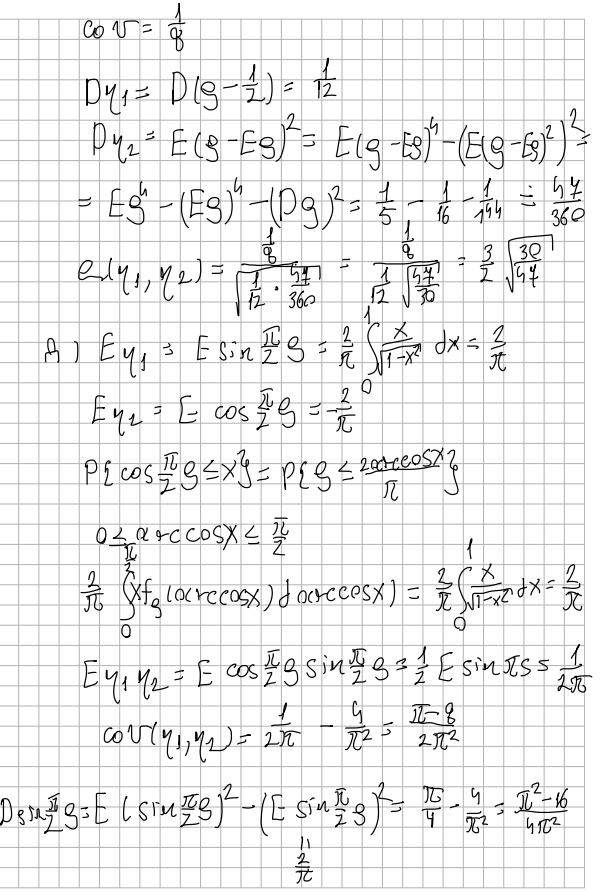 cov = 1/8
Dη₁ = D(ξ - 1/2) = 1/12
Dη₂ = E(ξ - Eξ)² = E(ξ - Eξ)⁴ - (E(ξ - Eξ)²)² =
= Eξ⁴ - (Eξ)⁴ - (Dξ)² = 1/5 - 1/16 - 1/144 = 47/360
ρ(η₁, η₂) = (1/8)/√(1/12 · 47/360) = (1/8)/(1/12 √(47/30)) = 3/2 √(30/47)
д) Eη₁ = E sin π/2 ξ = 2/π ∫₀¹ x/√(1-x²) dx = 2/π
Eη₂ = E cos π/2 ξ = 2/π
P{cos π/2 ξ ≤ x} = P{ξ ≤ 2arccosx/π}
0 ≤ arccosx ≤ π/2
2/π ∫₀^(π/2) x f_ξ(arccosx) d(arccosx) = 2/π ∫₀¹ x/√(1-x²) dx = 2/π
Eη₁η₂ = E cos π/2 ξ sin π/2 ξ = 1/2 E sin πξ = 1/2π
cov(η₁, η₂) = 1/2π - 4/π² = (π-8)/2π²
D sin π/2 ξ = E(sin π/2 ξ)² - (E sin π/2 ξ)² = π/4 - 4/π² = (π²-16)/4π²
"
2/π